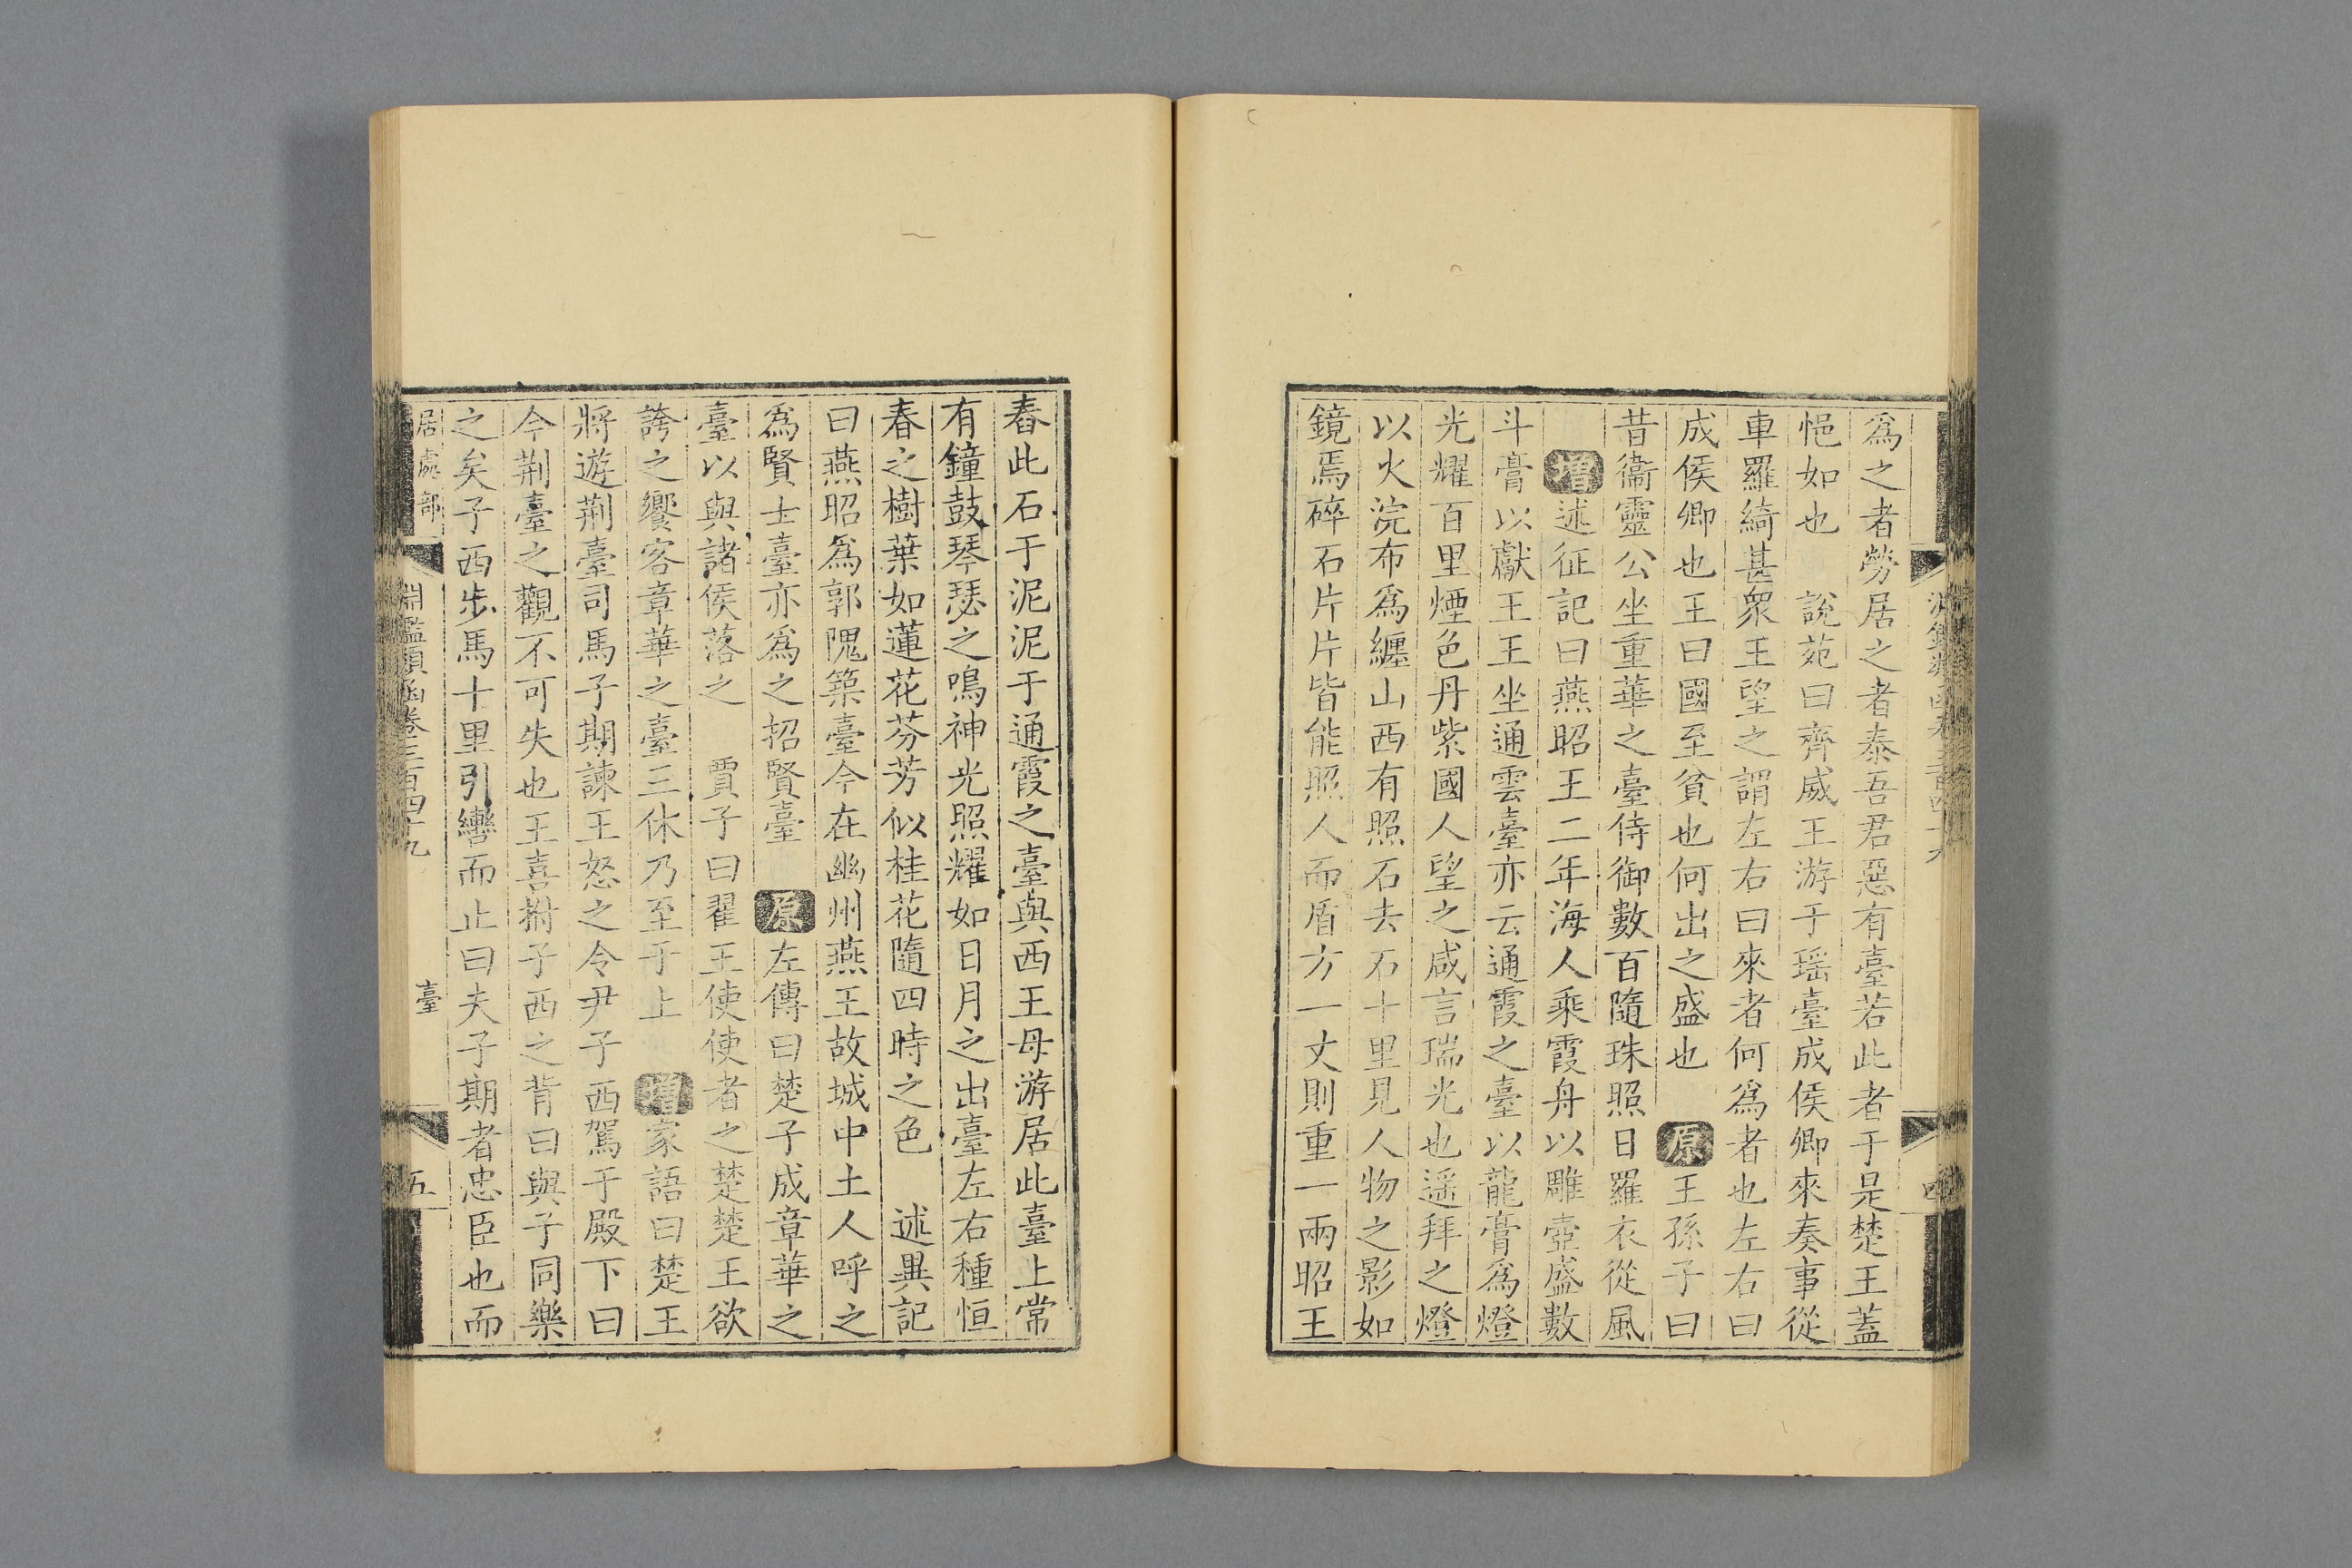 為之者勞居之者泰吾君惡有臺若此者于是楚王蓋
悒如也　說苑曰齊威王游于瑤臺成侯卿來奏事從
車羅綺甚衆王望之謂左右曰來者何為者也左右曰
成侯卿也王曰國至貧也何出之盛也　原王孫子曰
昔衞靈公坐重華之臺侍御數百隨珠照日羅衣從風
增述征記曰燕昭王二年海人乘霞舟以雕壺盛數
斗膏以獻王王坐通雲臺亦云通霞之臺以龍膏為燈
光耀百里煙色丹紫國人望之咸言瑞光也遥拜之燈
以火浣布為纏山西有照石去石十里見人物之影如
鏡焉碎石片片皆能照人而盾方一丈則重一兩昭王
舂此石于泥泥于通霞之臺與西王母游居此臺上常
有鐘鼓琴瑟之鳴神光照耀如日月之出臺左右種恒
春之樹葉如蓮花芬芳似桂花隨四時之色　述異記
曰燕昭為郭隗築臺今在幽州燕王故城中土人呼之
為賢士臺亦為之招賢臺　原左傳曰楚子成章華之
臺以與諸侯落之　賈子曰翟王使使者之楚楚王欲
誇之饗客章華之臺三休乃至于上　增家語曰楚王
將遊荆臺司馬子期諫王怒之令尹子西駕于殿下曰
今荆臺之觀不可失也王喜拊子西之背曰與子同樂
之矣子西步馬十里引轡而止曰夫子期者忠臣也而
居處部
淵鑑類函卷三百四十九
臺
五